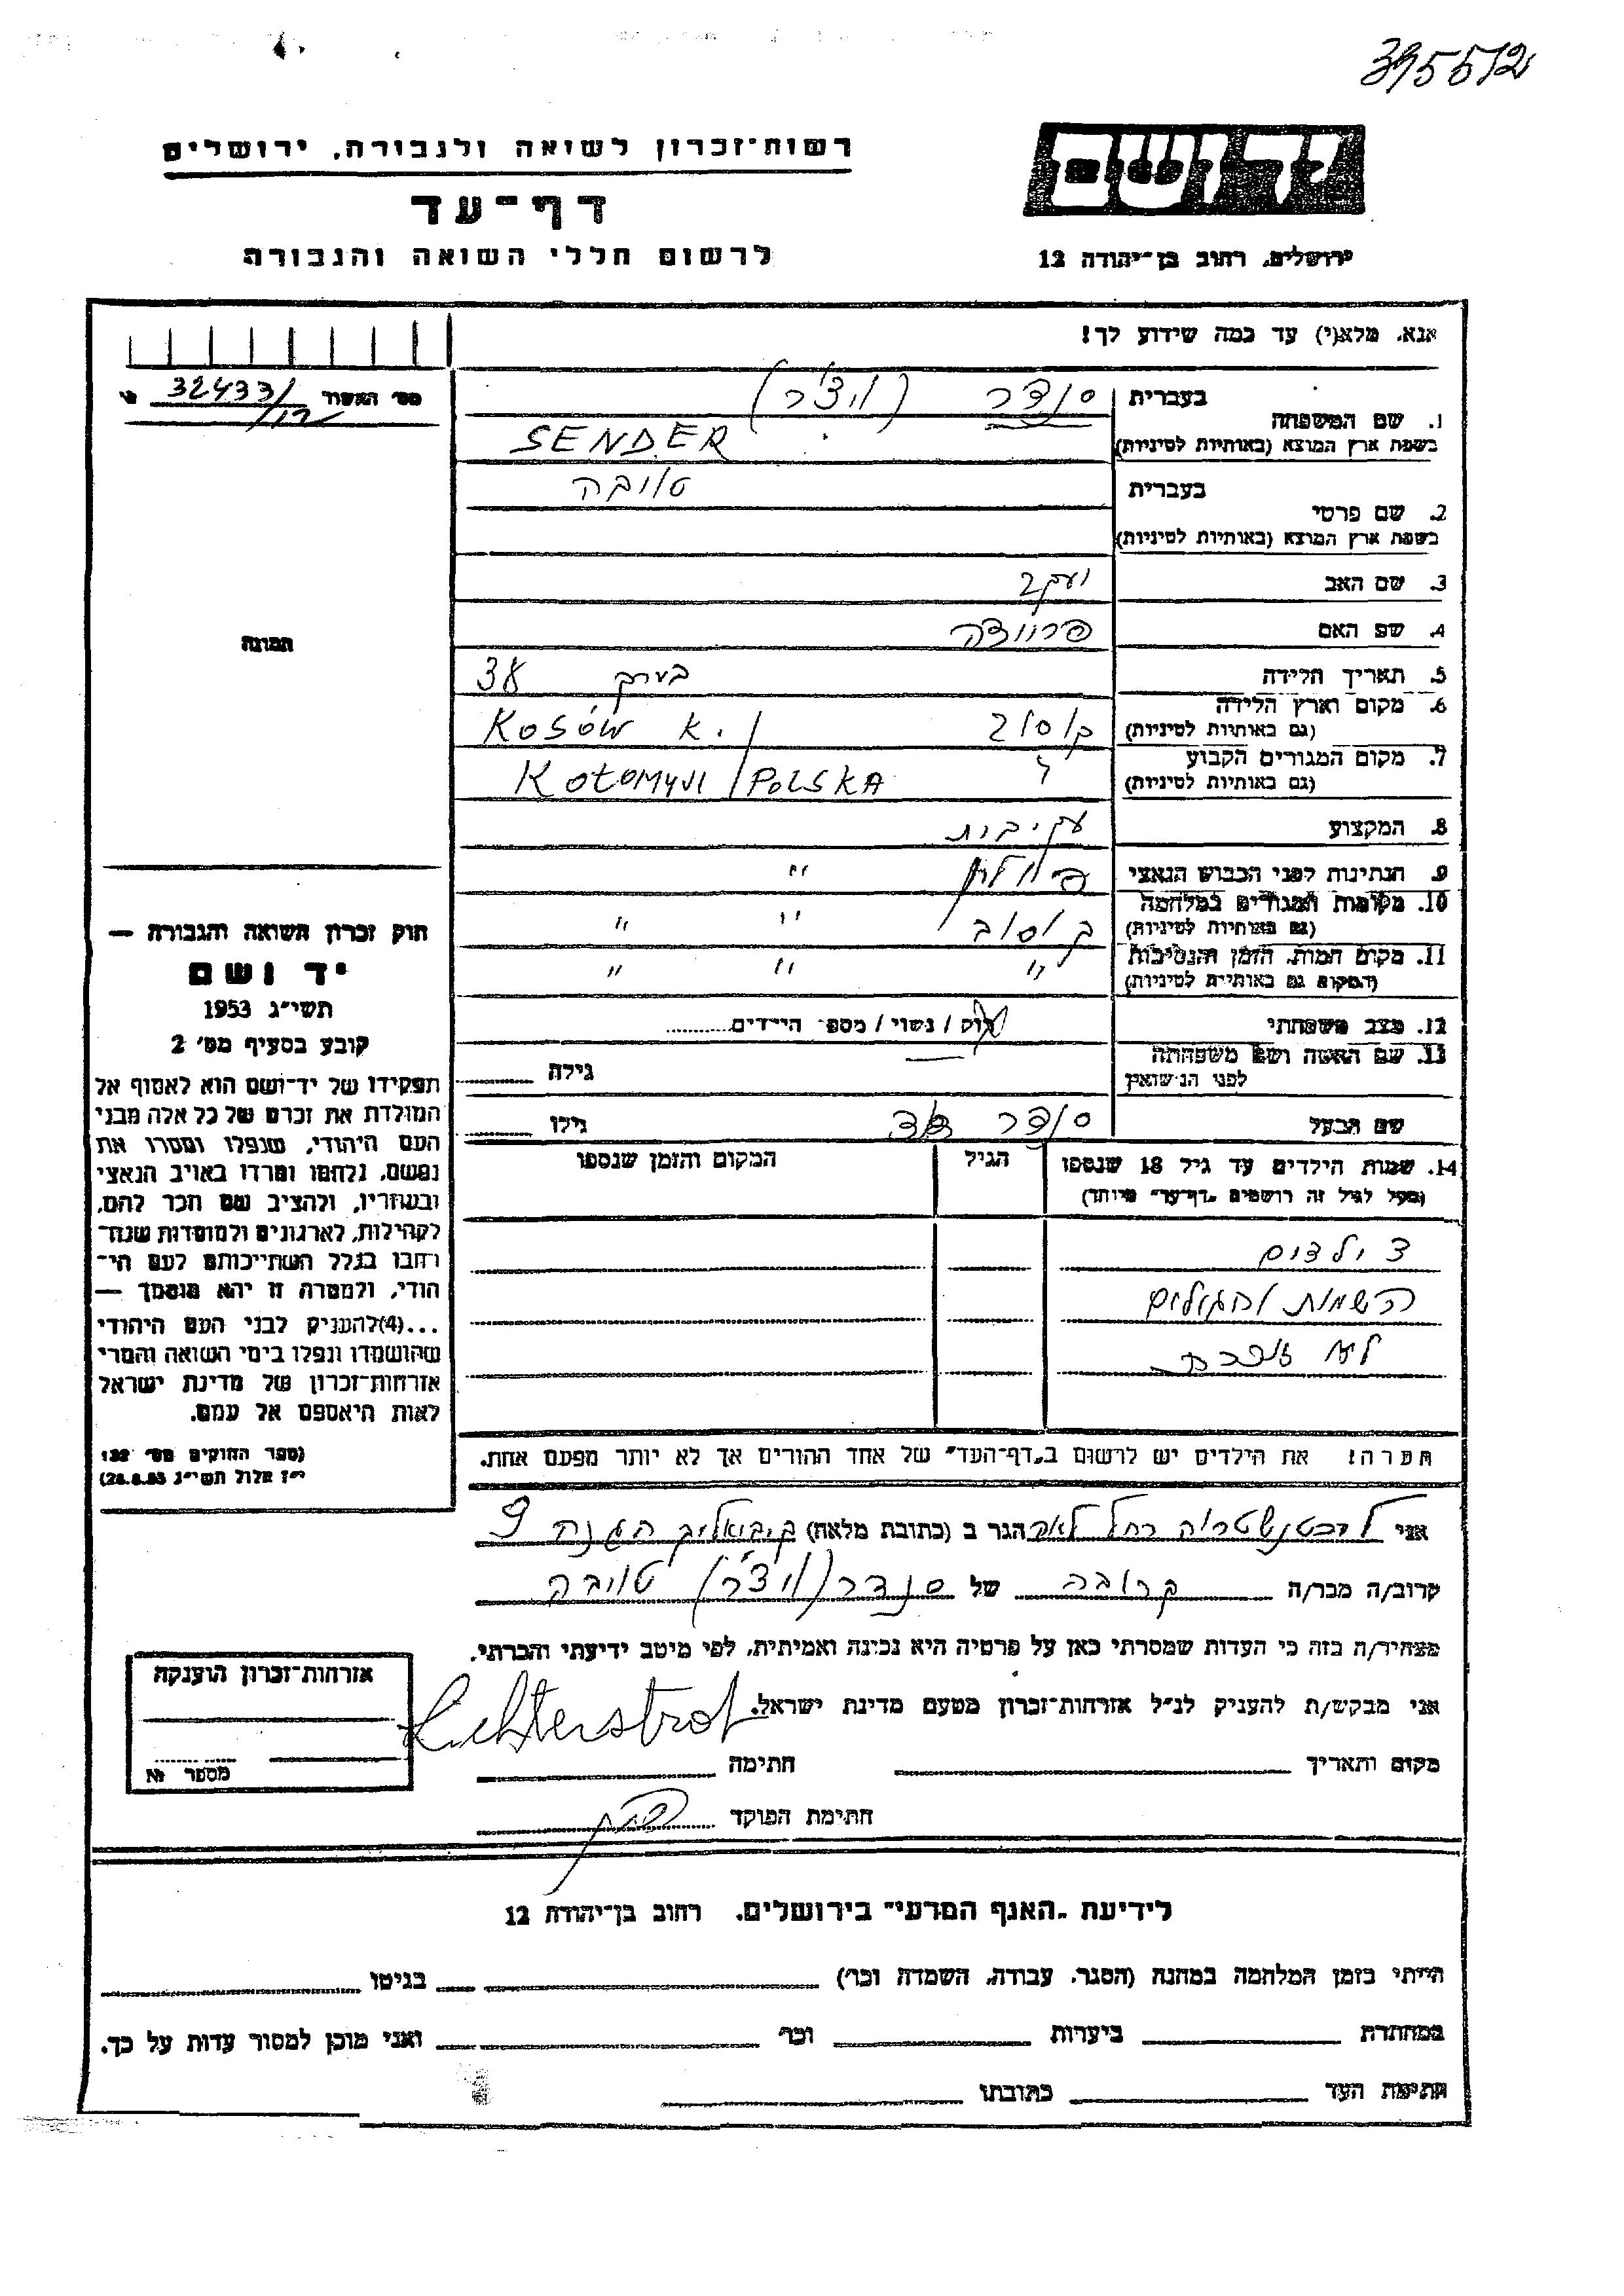 395572
רשות־זכרון לשואה ולגבורה, ירושלים
דף־עד
לרשום חללי השואה והגבורה
יד ושם
ירושלים, רחוב בן־יהודה 12
אנא, מלא(י) עד כמה שידוע לך!
מס׳ האשור 32433/
1. שם המשפחה
בעברית סנדר (ויצ׳ר)
בשפת ארץ המוצא (באותיות לטיניות) SENDER
2. שם פרטי
בעברית טויבה
בשפת ארץ המוצא (באותיות לטיניות)
3. שם האב יעקב
4. שם האם פרוודה
תמונה
5. תאריך הלידה בערך 38
6. מקום וארץ הלידה (גם באותיות לטיניות) קוסוב Kosów K./
7. מקום המגורים הקבוע (גם באותיות לטיניות) Kołomyji POLSKA
8. המקצוע עקיבית
9. הנתינות לפני הכבוש הנאצי פולין "
10. מקומות המגורים במלחמה (גם באותיות לטיניות) קוסוב " "
11. מקום המות, הזמן והנסיבות (המקום גם באותיות לטיניות) " " "
12. מצב משפחתי רוק / נשוי / מספר הילדים
13. שם האשה ושם משפחתה לפני הנישואין
גילה
שם הבעל סנדר
גילו
14. שמות הילדים עד גיל 18 שנספו
(מעל לגיל זה רושמים "דף־עד" מיוחד)
הגיל
המקום והזמן שנספו
3 ילדים
השמות והגילים
לא זוכרת
הערה! את הילדים יש לרשום ב"דף־העד" של אחד ההורים אך לא יותר מפעם אחת.
חוק זכרון השואה והגבורה —
יד ושם
תשי״ג 1953
קובע בסעיף מס׳ 2
תפקידו של יד־ושם הוא לאסוף אל
המולדת את זכרם של כל אלה מבני
העם היהודי, שנפלו ומסרו את
נפשם, נלחמו ומרדו באויב הנאצי
ובעוזריו, ולהציב שם וזכר להם,
לקהילות, לארגונים ולמוסדות שנח־
רבו בגלל השתייכותם לעם הי־
הודי, ולמטרה זו יהא מוסמך —
...(4) להעניק לבני העם היהודי
שהושמדו ונפלו בימי השואה והמרי
אזרחות־זכרון של מדינת ישראל
לאות היאספם אל עמם.
(ספר החוקים מס׳ 132
י״ז אלול תשי״ג 28.8.53)
אני ליכטנשטרוה רחל לאה הגר ב (כתובת מלאה) ק. ביאליק הגנה 9
קרוב/ה מכר/ה קרובה של סנדר (ויצ׳ר) טויבה
מצהיר/ה בזה כי העדות שמסרתי כאן על פרטיה היא נכונה ואמיתית, לפי מיטב ידיעתי והכרתי.
אני מבקש/ת להעניק לנ״ל אזרחות־זכרון מטעם מדינת ישראל.
מקום ותאריך
חתימה Lichterstrof
חתימת הפוקד
אזרחות־זכרון הוענקה
מספר
לידיעת "האגף המדעי" בירושלים, רחוב בן־יהודה 12
הייתי בזמן המלחמה במחנה (הסגר, עבודה, השמדה וכו׳) בגיטו
במחתרת ביערות וכו׳ ואני מוכן למסור עדות על כך.
חתימת העד כתובתו